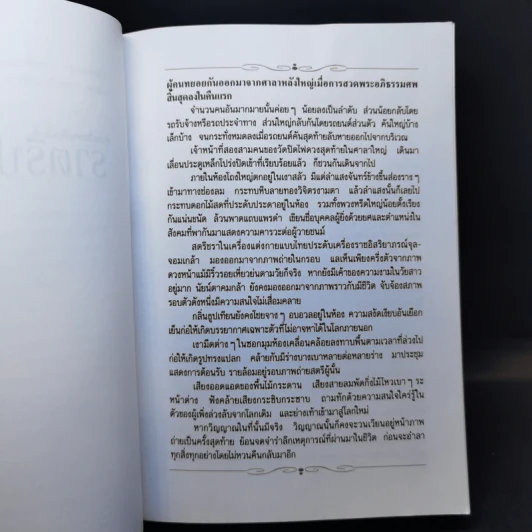 ผู้คนทยอยกันออกมาจากศาลาหลังใหญ่เมื่อการสวดพระอภิธรรมศพ
สิ้นสุดลงในคืนแรก
จำนวนคนอันมากมายนั้นค่อยๆ น้อยลงเป็นลำดับ ส่วนน้อยกลับโดย
รถรับจ้างหรือรถประจำทาง ส่วนใหญ่กลับกันโดยรถยนต์ส่วนตัว คันใหญ่บ้าง
เล็กบ้าง จนกระทั่งหมดลงเมื่อรถยนต์คันสุดท้ายลับหายออกไปจากบริเวณ
เจ้าหน้าที่สองสามคนของวัดปิดไฟดวงสุดท้ายในศาลาใหญ่ เดินมา
เลื่อนประตูเหล็กโปร่งปิดเข้าที่เรียบร้อยแล้ว ก็ชวนกันเดินจากไป
ภายในห้องโถงใหญ่ตกอยู่ในเงาสลัว มีแต่ลำแสงจันทร์ข้างขึ้นส่องรางๆ
เข้ามาทางช่องลม กระทบหีบลายทองวิจิตรงามตา แล้วลำแสงนั้นก็เลยไป
กระทบดอกไม้สดที่ประดับประดาอยู่ในห้อง รวมทั้งพวงหรีดใหญ่น้อยตั้งเรียง
กันแน่นขนัด ล้วนพาดแถบแพรดำ เขียนชื่อบุคคลผู้ยิ่งด้วยยศและตำแหน่งใน
สังคมที่พากันมาแสดงความคารวะต่อผู้วายชนม์
สตรีชราในเครื่องแต่งกายแบบไทยประดับเครื่องราชอิสริยาภรณ์จุล-
จอมเกล้า มองออกมาจากภาพถ่ายในกรอบ แลเห็นเพียงครึ่งตัวจากภาพ
ดวงหน้าแม้มีริ้วรอยเหี่ยวย่นตามวัยก็จริง หากยังมีเค้าของความงามในวัยสาว
อยู่มาก นัยน์ตาคมกล้า ยังคงมองออกมาจากภาพราวกับมีชีวิต จับจ้องสภาพ
รอบตัวดังหนึ่งมีความสนใจไม่เสื่อมคลาย
กลิ่นธูปเทียนยังคงโชยจางๆ อบอวลอยู่ในห้อง ความสงัดเงียบอันเยือก
เย็นก่อให้เกิดบรรยากาศเฉพาะตัวที่ไม่อาจหาได้ในโลกภายนอก
เงามืดต่างๆ ในซอกมุมห้องเคลื่อนคล้อยลงทาบพื้นตามเวลาที่ล่วงไป
ก่อให้เกิดรูปทรงแปลก คล้ายกับมีร่างบางเบาหลายต่อหลายร่าง มาประชุม
แสดงการต้อนรับ รายล้อมอยู่รอบภาพถ่ายสตรีผู้นั้น
เสียงออดแอดของพื้นไม้กระดาน เสียงสายลมพัดกิ่งไม้ไหวเบาๆ ระ
หน้าต่าง ฟังคล้ายเสียงกระซิบกระซาบ ถามทักด้วยความสนใจใคร่รู้ใน
ตัวของผู้เพิ่งล่วงลับจากโลกเดิม และย่างเท้าเข้ามาสู่โลกใหม่
หากวิญญาณในที่นั้นมีจริง วิญญาณนั้นก็คงจะวนเวียนอยู่หน้าภาพ
ถ่ายเป็นครั้งสุดท้าย ย้อนจดจำรำลึกเหตุการณ์ที่ผ่านมาในชีวิต ก่อนจะอำลา
ทุกสิ่งทุกอย่างโดยไม่หวนคืนกลับมาอีก